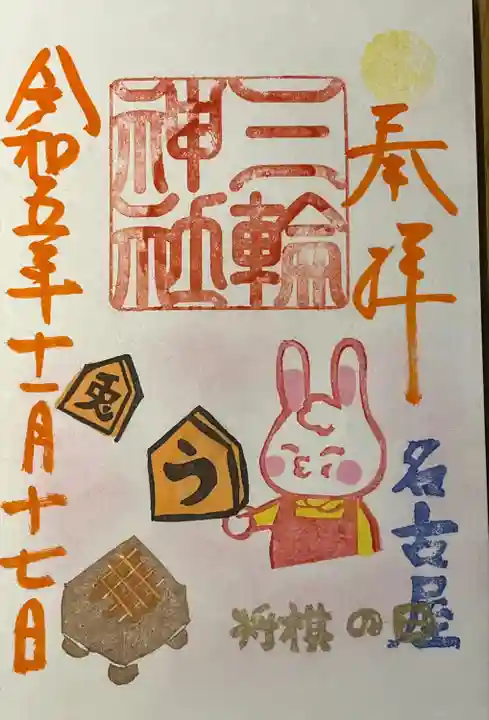 奉拝
三輪
神社
名古屋
将棋の日
う
兎
令和五年十一月十七日